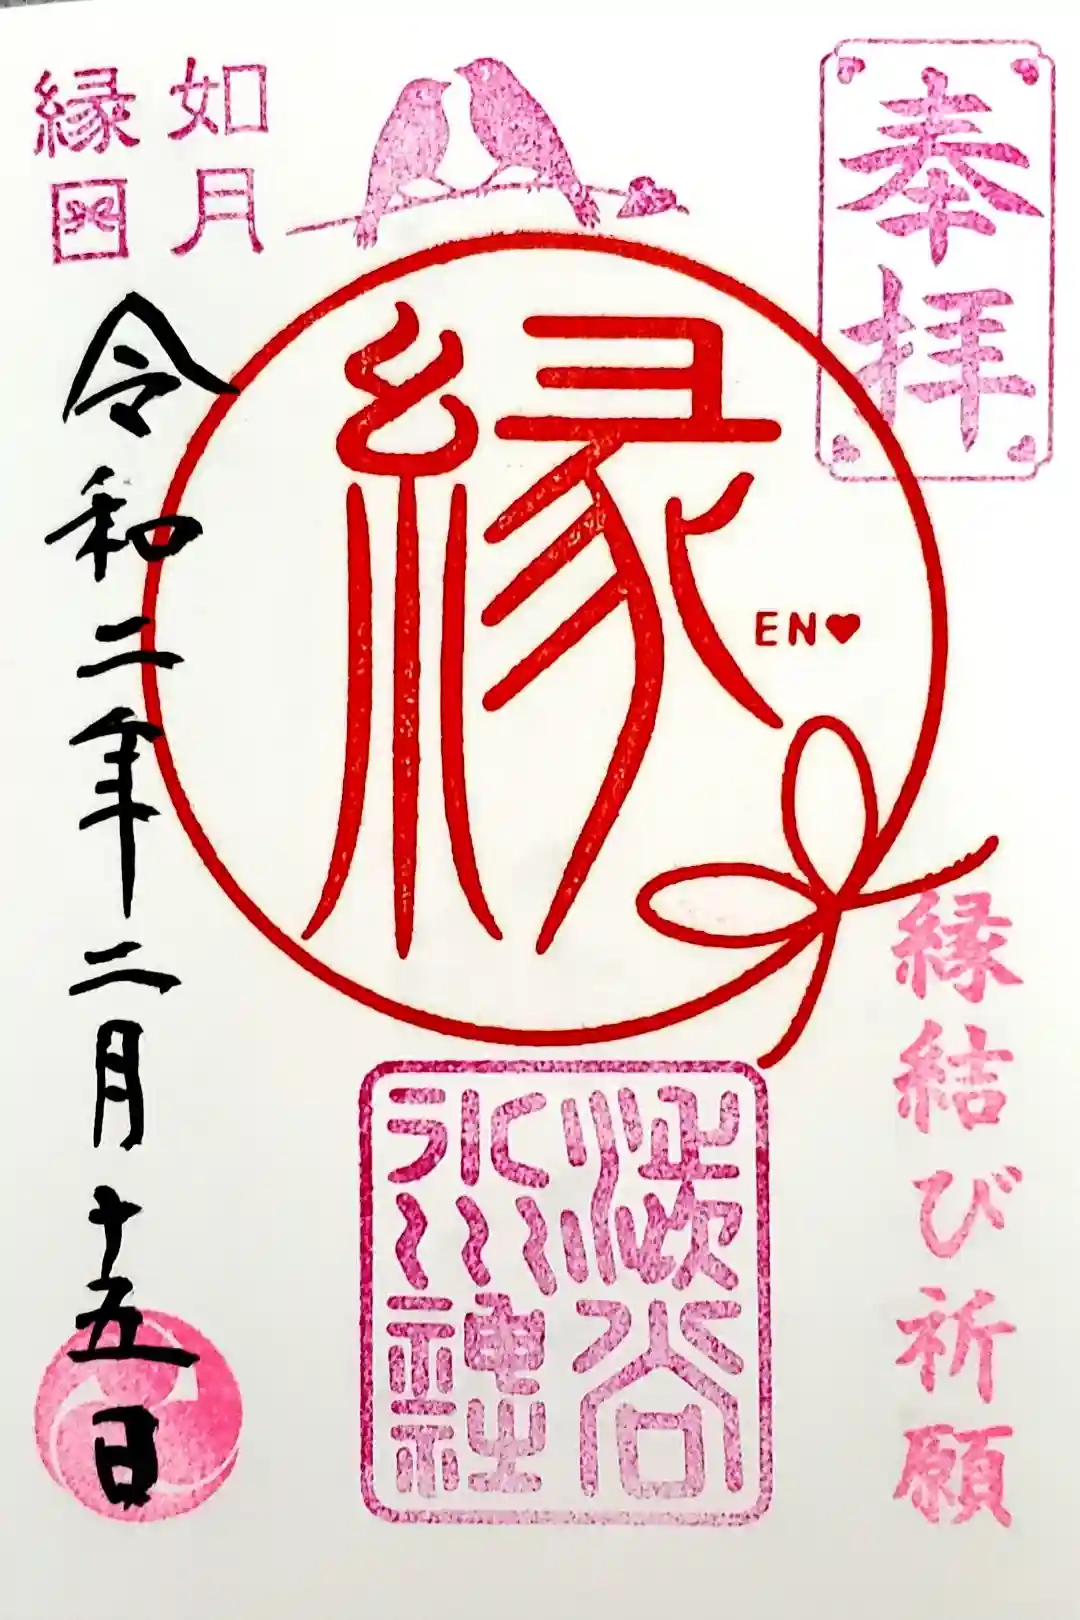 奉拝
縁結び祈願
縁
EN♥
渋谷
氷川
神社
如月
縁日
令和二年二月十五日